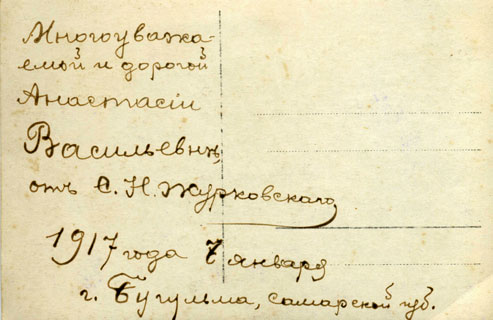 Многоуважа-
емой и дорогой
Анастасіи
Васильевнѣ,
отъ С. Н. Журковскаго,
1917 года 7 января
г. Бугульма, Самарской губ.